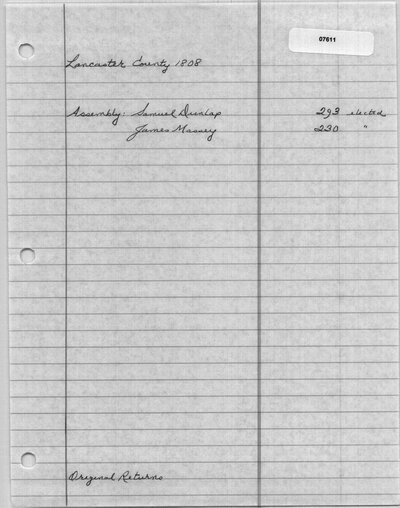 07611
Lancaster County 1808
Assembly: Samuel Dunlap 293 elected
James Massey 230 "
Original Returns